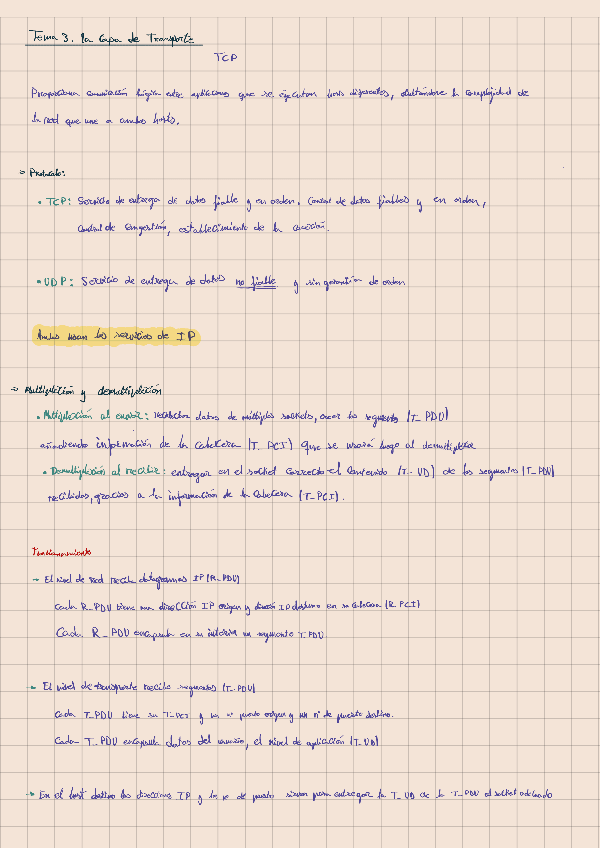 Tema 3. La Capa de Transporte
TCP
Proporciona comunicación lógica entre aplicaciones que se ejecutan hosts diferentes, ocultándose la complejidad de
la red que une a ambos hosts.
Protocolo:
• TCP: Servicio de entrega de datos fiable y en orden. Control de datos fiables y en orden,
control de congestión, establecimiento de la conexión.
• UDP: Servicio de entrega de datos no fiable y sin garantía de orden
Ambos usan los servicios de IP
Multiplexión y demultiplexión
• Multiplexión al enviar: recolectar datos de múltiples sockets, crear los segmentos (T_PDU)
añadiendo información de la cabecera (T_PCI) que se usará luego al demultiplexar
• Demultiplexión al recibir: entregar en el socket correcto el contenido (T_UD) de los segmentos (T_PDU)
recibidos, gracias a la información de la cabecera (T_PCI).
Funcionamiento
→ El nivel de red recibe datagramas IP (R_PDU)
Cada R_PDU tiene una dirección IP origen y dirección IP destino en su cabecera (R_PCI)
Cada R_PDU encapsula en su interior un segmento T_PDU
→ El nivel de transporte recibe segmentos (T_PDU)
Cada T_PDU tiene su T_PCI y un nº puerto origen y un nº de puerto destino.
Cada T_PDU encapsula datos del usuario, el nivel de aplicación (T_UD)
→ En el host destino las direcciones IP y los nº de puerto sirven para entregar la T_UD de la T_PDU al socket adecuado